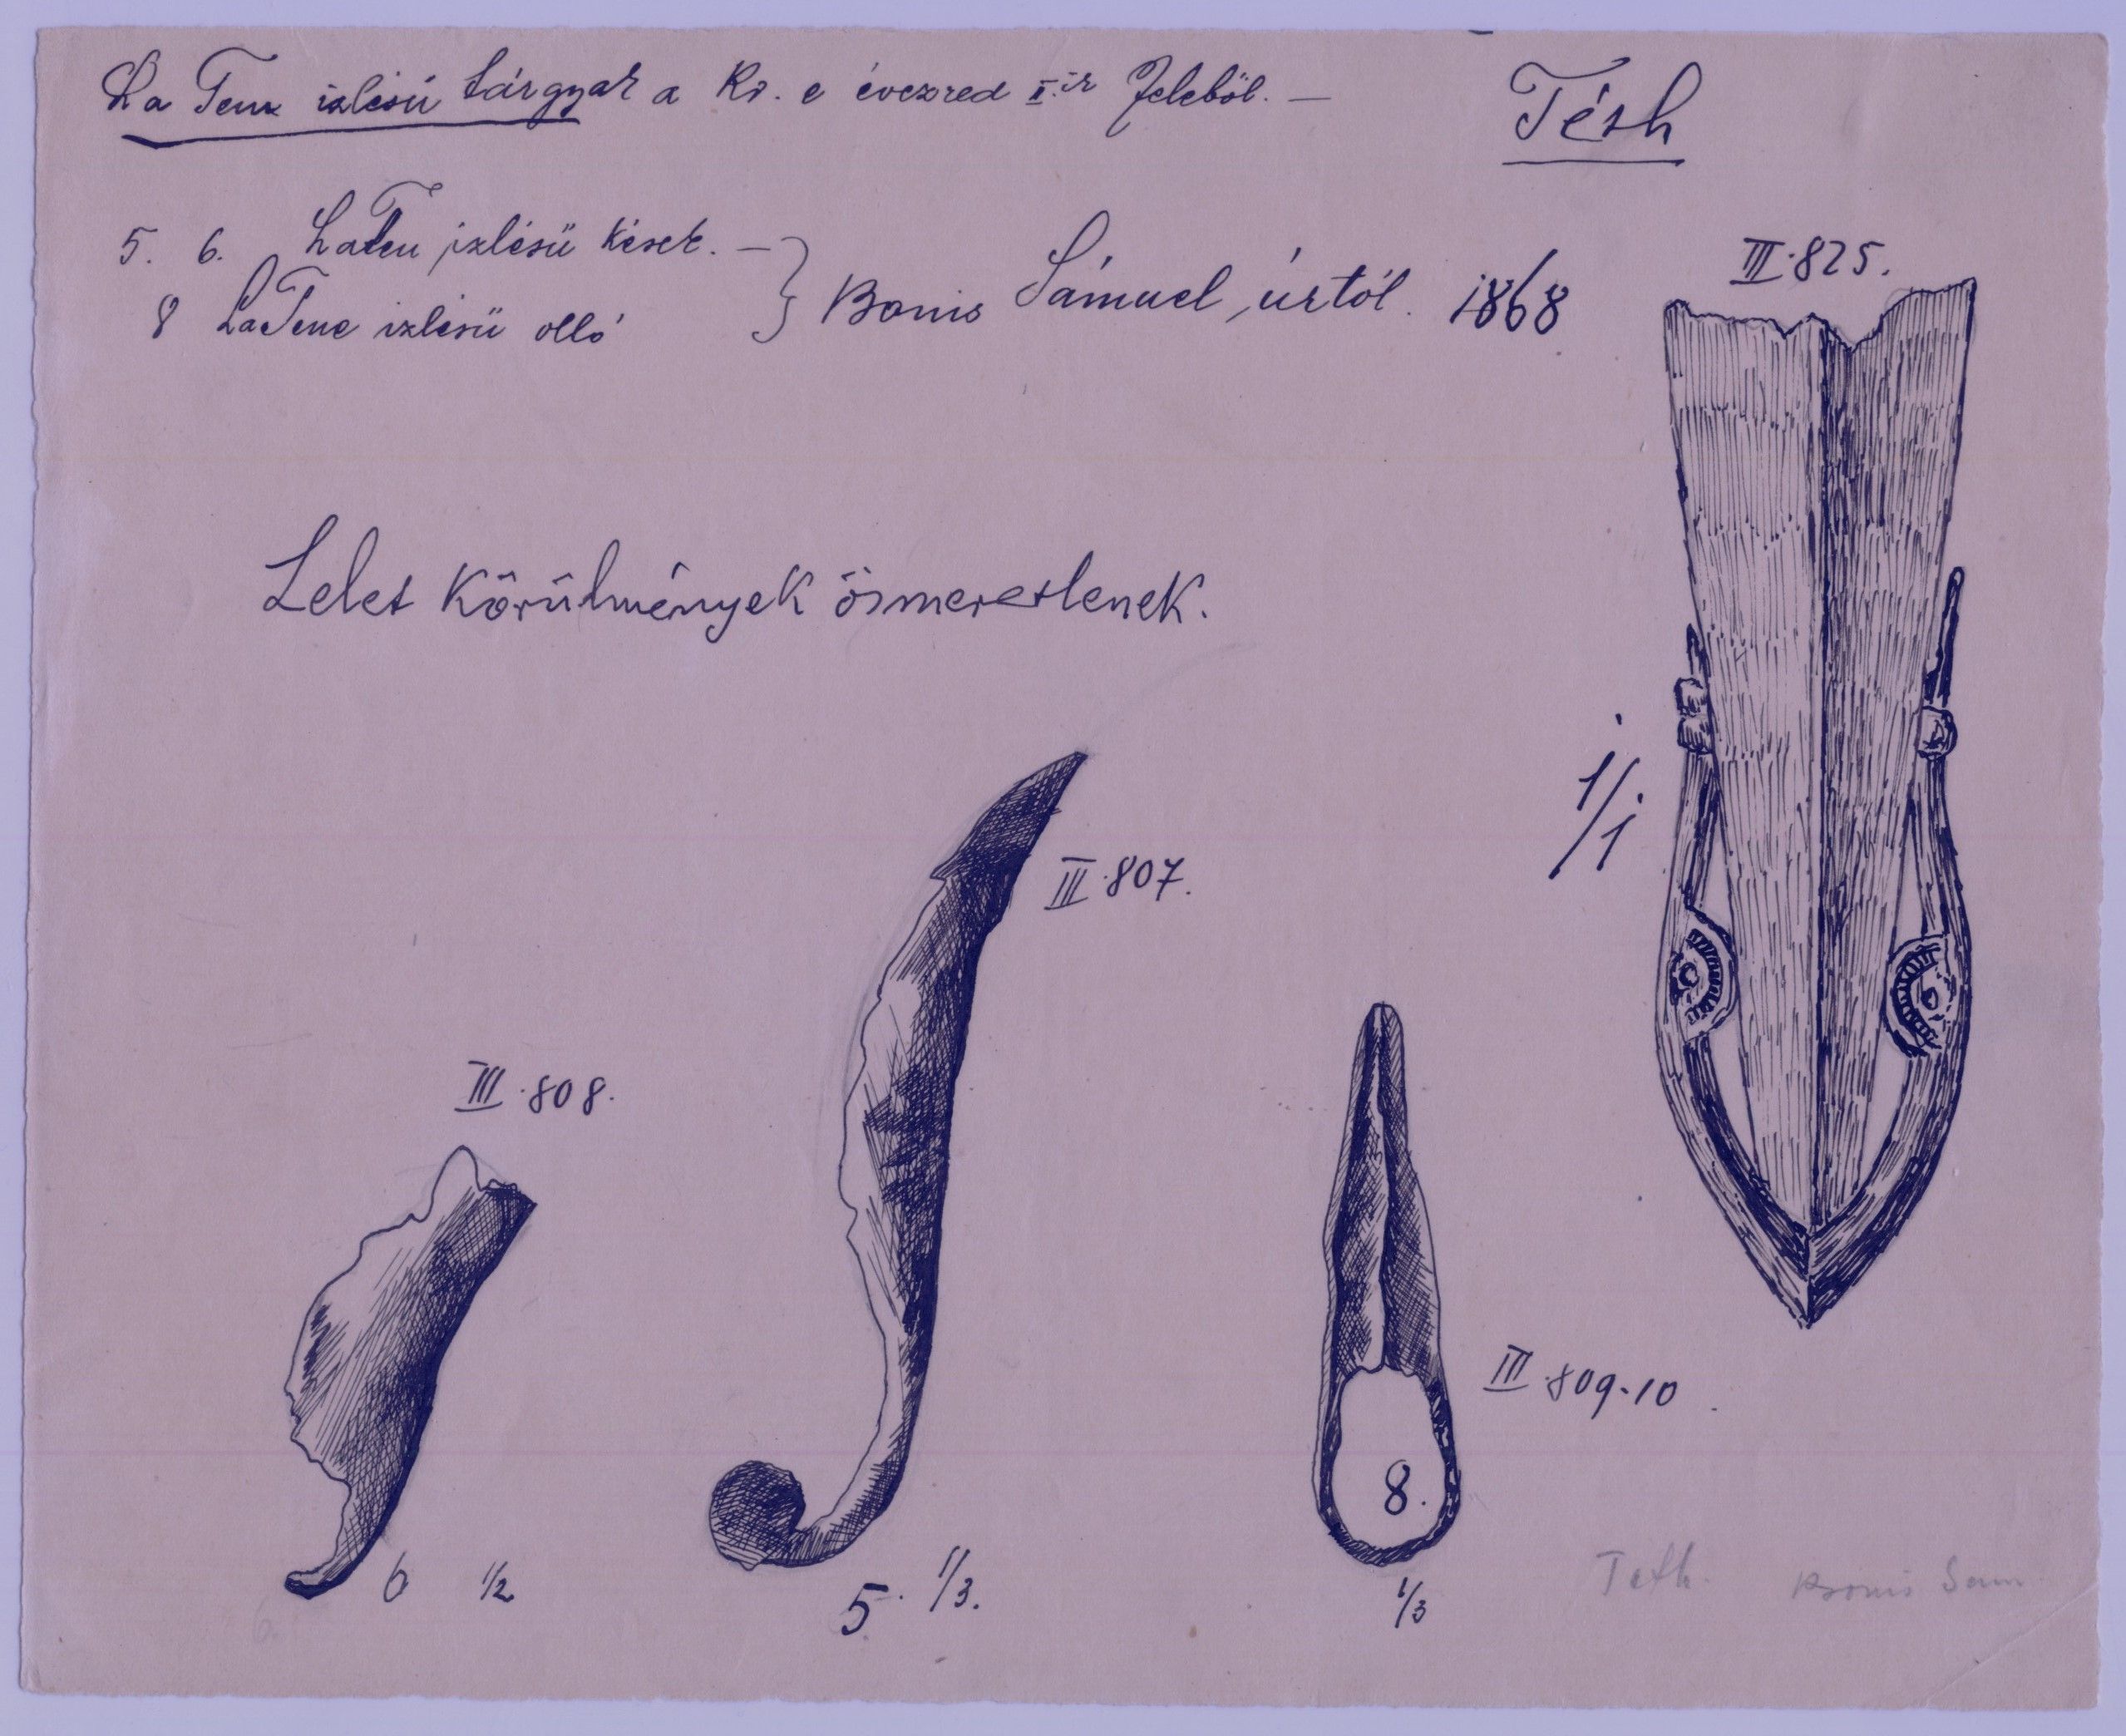 La Tene izlésű tárgyak a Kr. e évezred II.ik feléből. —
Tésh
5. 6. LaTen izlésü kések. —
8 LaTene izlésü olló
Bonis Sámuel úrtól. 1868
III.825.
Lelet körülmények ösmeretlenek.
1/1
III.807.
III.808.
III.809-10
8.
6 1/2
5. 1/3.
1/3
6.
Teth. Bonis Sam